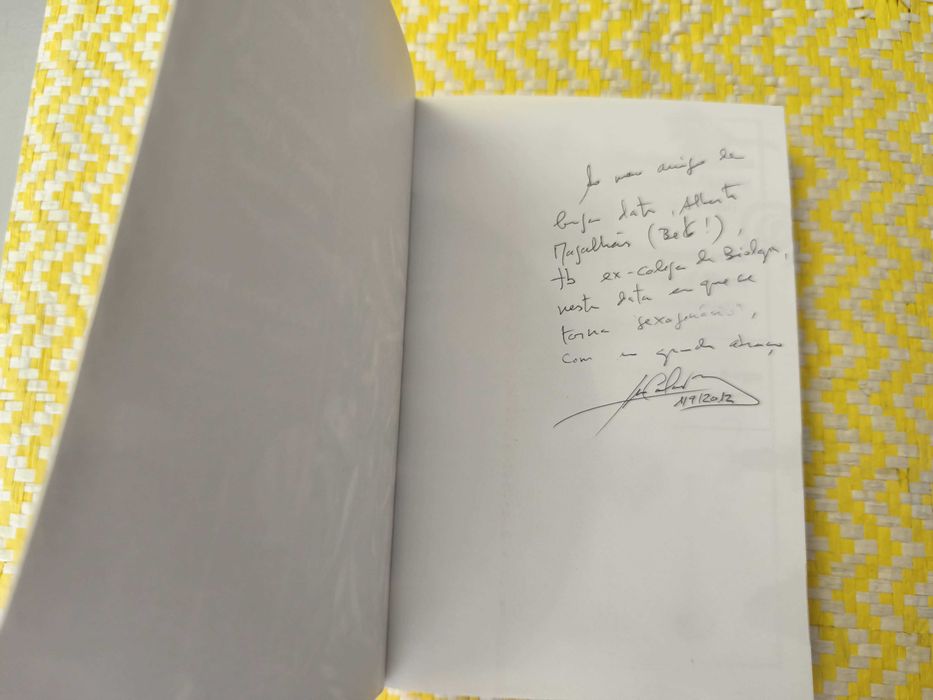 Ao meu amigo de
longa data, Alberto
Magalhães (Beto!),
tb ex-colega da Biologia,
nesta data em que se
torna "sexagenário",
com um grande abraço
1/9/2012